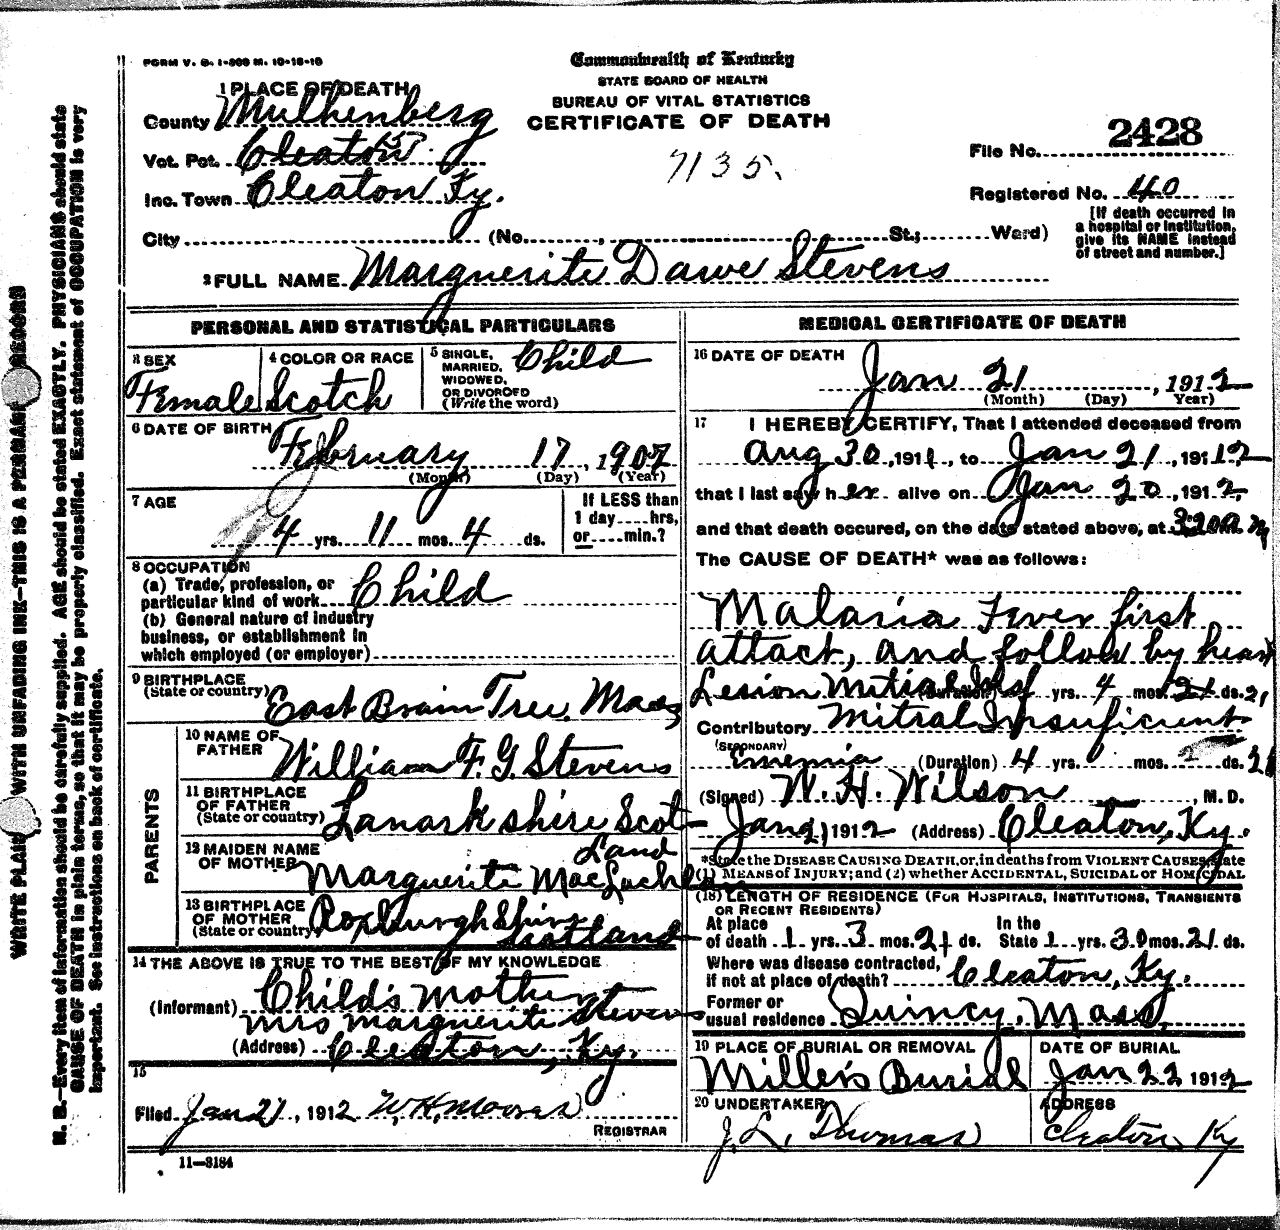 FORM V. S. 1-500 M. 10-18-10
Commonwealth of Kentucky
STATE BOARD OF HEALTH
BUREAU OF VITAL STATISTICS
CERTIFICATE OF DEATH
1 PLACE OF DEATH
County Muhlenberg
Vot. Pct. Cleaton
Inc. Town Cleaton Ky.
7135.
File No. 2428
Registered No. 40
[If death occurred in
a hospital or institution,
give its NAME instead
of street and number.]
City (No. , St.; Ward)
2 FULL NAME Marguerite Dawe Stevens
PERSONAL AND STATISTICAL PARTICULARS
3 SEX
Female
4 COLOR OR RACE
Scotch
5 SINGLE,
MARRIED,
WIDOWED,
OR DIVORCED
(Write the word)
Child
6 DATE OF BIRTH
February 17, 1907
(Month) (Day) (Year)
7 AGE
4 yrs. 11 mos. 4 ds.
If LESS than
1 day....hrs,
or....min.?
8 OCCUPATION
(a) Trade, profession, or
particular kind of work Child
(b) General nature of industry
business, or establishment in
which employed (or employer)
9 BIRTHPLACE
(State or country) East Brain Tree, Mass
PARENTS
10 NAME OF
FATHER William F. G. Stevens
11 BIRTHPLACE
OF FATHER
(State or country) Lanark shire Scot-
land
12 MAIDEN NAME
OF MOTHER Marguerite MacLachlan
13 BIRTHPLACE
OF MOTHER
(State or country) Roxburgh Shire
Scotland
14 THE ABOVE IS TRUE TO THE BEST OF MY KNOWLEDGE
(Informant) Child's mother
Mrs Marguerite Stevens
(Address) Cleaton, Ky.
15
Filed Jan 21, 1912 W. H. Moores
REGISTRAR
11—3184
MEDICAL CERTIFICATE OF DEATH
16 DATE OF DEATH
Jan 21, 1912
(Month) (Day) Year)
17 I HEREBY CERTIFY, That I attended deceased from
Aug 30, 1911, to Jan 21, 1912
that I last saw her alive on Jan 20, 1912,
and that death occured, on the date stated above, at 3:20 a m
The CAUSE OF DEATH* was as follows:
Malaria Fever first
attact, and follow by heart
Lesion Mitial (Duration) yrs. 4 mos. 21 ds.
Contributory Mitral Insufficient
(SECONDARY)
(Duration) 4 yrs. mos. ds. 21
(Signed) W. H. Wilson, M. D.
Jan 21, 1912 (Address) Cleaton, Ky.
*State the DISEASE CAUSING DEATH, or, in deaths from VIOLENT CAUSES, state
(1) MEANS of INJURY; and (2) whether ACCIDENTAL, SUICIDAL or HOMICIDAL
(18) LENGTH OF RESIDENCE (FOR HOSPITALS, INSTITUTIONS, TRANSIENTS
OR RECENT RESIDENTS)
At place
of death 1 yrs. 3 mos. 21 ds.
In the
State 1 yrs. 3 mos. 21 ds.
Where was disease contracted,
if not at place of death? Cleaton, Ky.
Former or
usual residence Quincy, Mass.
19 PLACE OF BURIAL OR REMOVAL
Miller's Burial
DATE OF BURIAL
Jan 22 1912
20 UNDERTAKER
J. L. Thomas
ADDRESS
Cleaton, Ky
WRITE PLAINLY WITH UNFADING INK—THIS IS A PERMANENT RECORD
N. B.—Every item of information should be carefully supplied. AGE should be stated EXACTLY. PHYSICIANS should state
CAUSE OF DEATH in plain terms, so that it may be properly classified. Exact statement of OCCUPATION is very
important. See instructions on back of certificate.